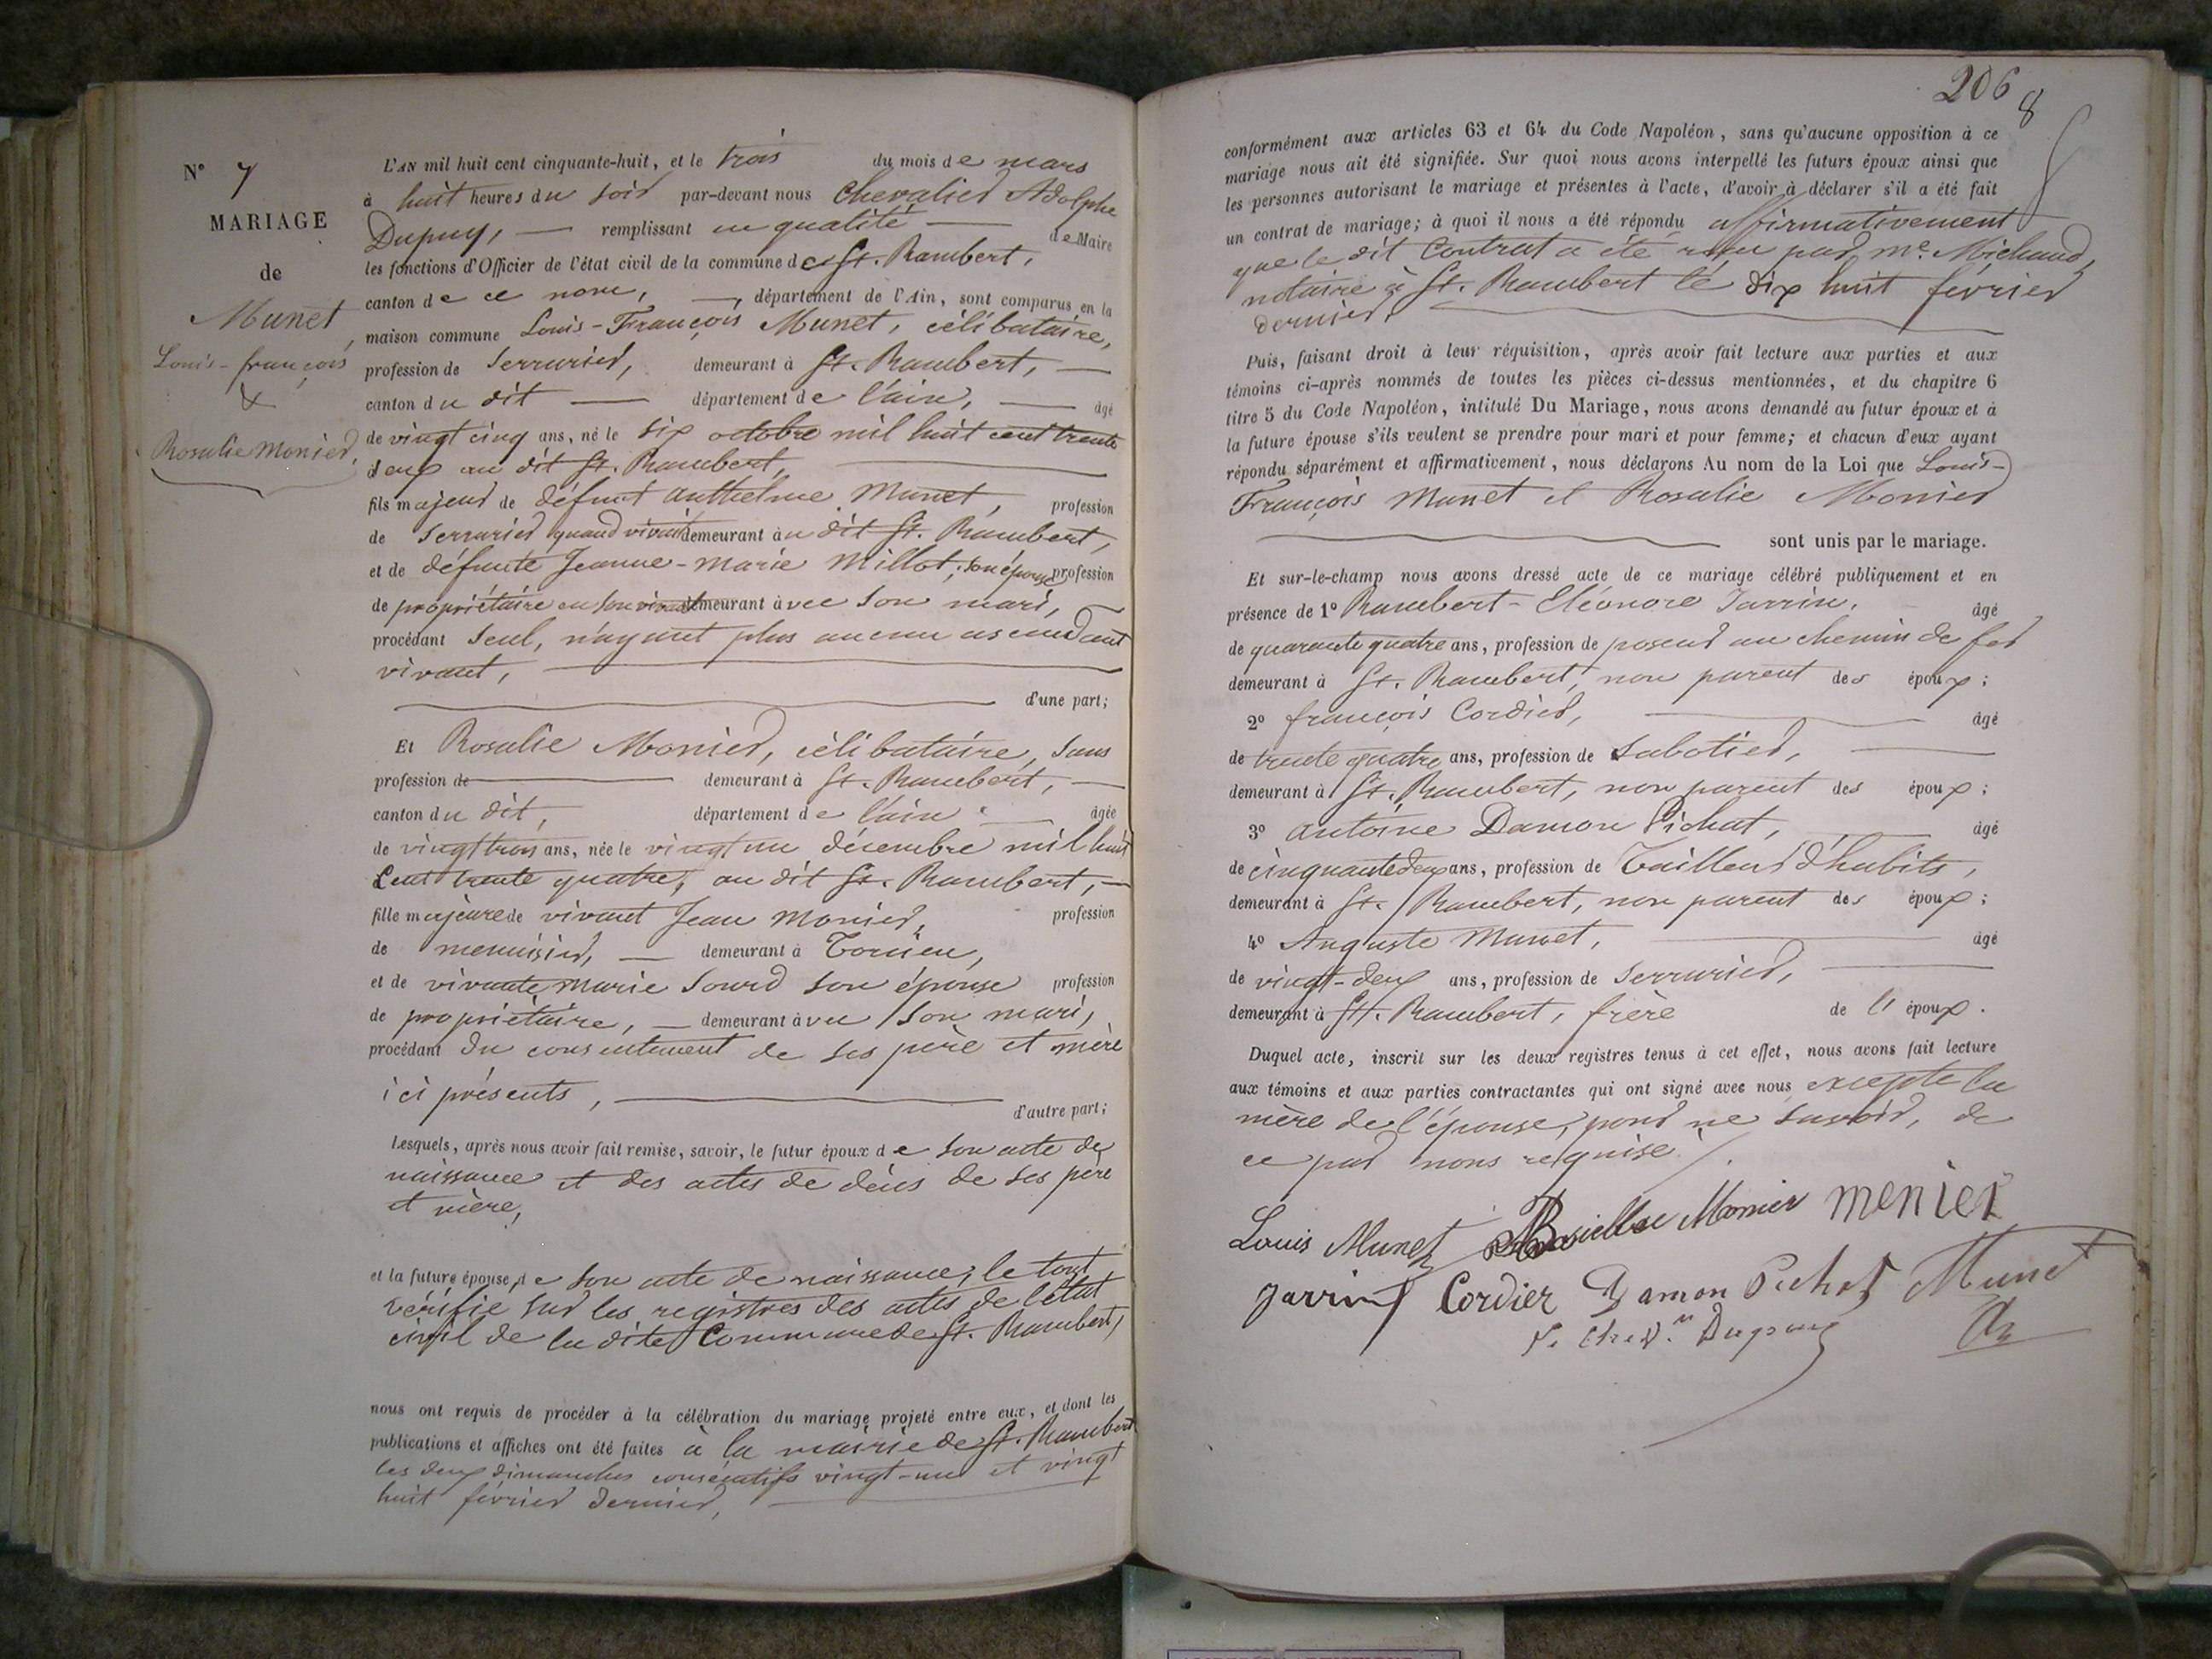 N° 7
MARIAGE
de
Munet
Louis-françois
&
Rosalie Monier,
L'AN mil huit cent cinquante-huit, et le trois du mois de mars
à huit heures du soir par-devant nous Chevalier Adolphe
Dupuy, — remplissant en qualité — de Maire
les fonctions d'Officier de l'état civil de la commune de St. Rambert,
canton de ce nom, —, département de l'Ain, sont comparus en la
maison commune Louis-François Munet, célibataire,
profession de Serrurier, demeurant à St. Rambert, —
canton du dit — département de l'ain, — âgé
de vingt cinq ans, né le six octobre mil huit cent trente
deux au dit St. Rambert,
fils majeur de défunt Anthelme Munet, profession
de Serrurier quand vivait demeurant au dit St. Rambert,
et de défunte Jeanne-Marie Millot, son épouse profession
de propriétaire en son vivant demeurant avec son mari,
procédant seul, n'ayant plus aucun ascendant
vivant,
d'une part;
Et Rosalie Monier, célibataire, sans
profession de — demeurant à St. Rambert, —
canton du dit, département de l'ain — âgée
de vingt trois ans, née le vingt un décembre mil huit
Cent trente quatre, au dit St. Rambert, —
fille majeure de vivant Jean Monier, profession
de menuisier, — demeurant à Torcieu,
et de vivante Marie Sourd son épouse profession
de propriétaire, — demeurant avec son mari,
procédant du consentement de ses père et mère
ici présents, —
d'autre part;
Lesquels, après nous avoir fait remise, savoir, le futur époux de son acte de
naissance et des actes de décès de ses père
et mère,
et la future épouse de son acte de naissance, le tout
vérifié sur les registres des actes de l'état
civil de la dite Commune de St. Rambert,
nous ont requis de procéder à la célébration du mariage projeté entre eux, et dont les
publications et affiches ont été faites à la mairie de St. Rambert
les deux dimanches consécutifs vingt-un et vingt
huit février dernier,
206
8
conformément aux articles 63 et 64 du Code Napoléon, sans qu'aucune opposition à ce
mariage nous ait été signifiée. Sur quoi nous avons interpellé les futurs époux ainsi que
les personnes autorisant le mariage et présentes à l'acte, d'avoir à déclarer s'il a été fait
un contrat de mariage; à quoi il nous a été répondu affirmativement
que le dit Contrat a été reçu par Me. Michaud,
notaire à St. Rambert le dix huit février
dernier.
Puis, faisant droit à leur réquisition, après avoir fait lecture aux parties et aux
témoins ci-après nommés de toutes les pièces ci-dessus mentionnées, et du chapitre 6
titre 5 du Code Napoléon, intitulé Du Mariage, nous avons demandé au futur époux et à
la future épouse s'ils veulent se prendre pour mari et pour femme; et chacun d'eux ayant
répondu séparément et affirmativement, nous déclarons Au nom de la Loi que Louis-
François Munet et Rosalie Monier
sont unis par le mariage.
Et sur-le-champ nous avons dressé acte de ce mariage célébré publiquement et en
présence de 1° Rambert-Eléonore Jarrin, âgé
de quarante quatre ans, profession de poseur au chemin de fer
demeurant à St. Rambert, non parent des époux;
2° françois Cordier, — âgé
de trente quatre ans, profession de Sabotier, —
demeurant à St. Rambert, non parent des époux;
3° Antoine Damon Pichat, âgé
de cinquante deux ans, profession de Tailleur d'habits,
demeurant à St. Rambert, non parent des époux;
4° Auguste Munet, — âgé
de vingt-deux ans, profession de Serrurier, —
demeurant à St. Rambert, frère de l'époux.
Duquel acte, inscrit sur les deux registres tenus à cet effet, nous avons fait lecture
aux témoins et aux parties contractantes qui ont signé avec nous excepté la
mère de l'épouse, pour ne savoir, de
ce par nous requise.
Louis Munet Monier menier
Jarrin Cordier Damon Pichat Munet
Chevr. Dupuy